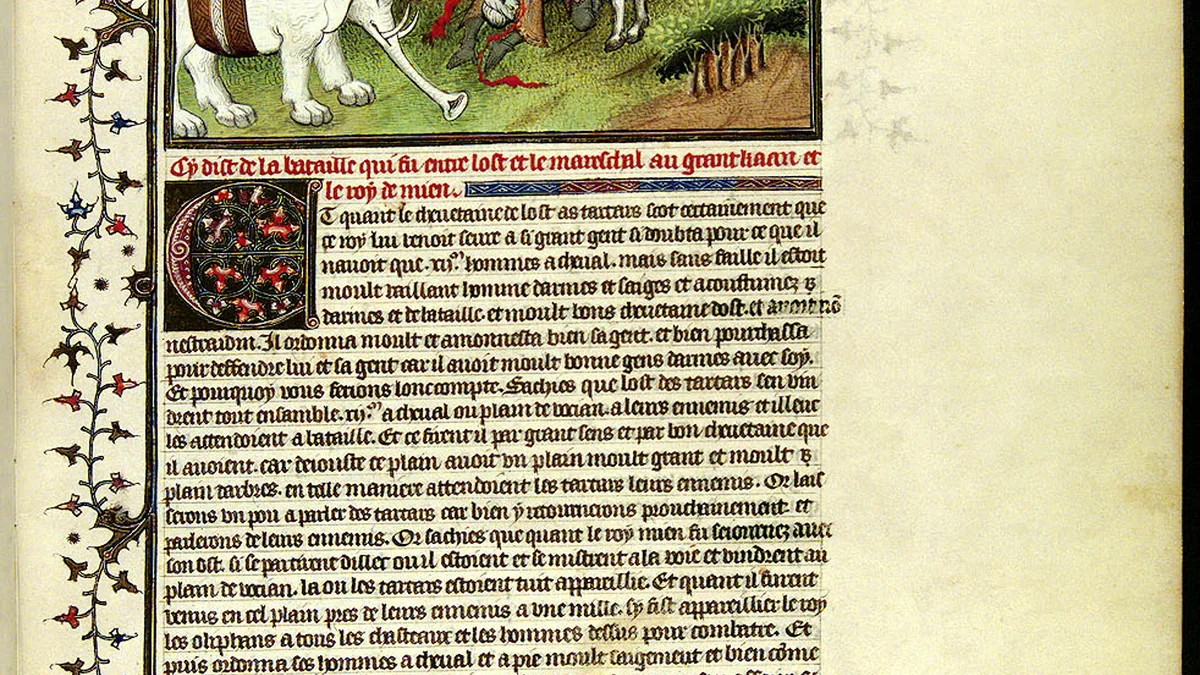 Cy dist de la bataille qui fu entre lost et le mareschal au grant kaan et
le roy de mien.
Et quant le cheuetaine de lost as tartars scot certainement que
ce roy lui venoit seure a si grant gent si doubta pour ce que il
nauoit que .xii.ᵐ hommes a cheual. mais sans faille il estoit
moult vaillant homme darmes et saiges et acoustumez
darmes et de bataille. et moult bons cheuetaine dost. et auoit nō
nestraidin. Il ordonna moult et amonnesta bien sa gent. et bien pourchassa
pour deffendre lui et sa gent car il auoit moult bonne gens darmes auec soy.
Et pourquoy vous ferions loncompte. Sachies que lost des tartars sen vin
drent tout ensamble .xii.ᵐ a cheual ou plain de vocian. a leurs ennemis et illeuc
les attendoient a bataille. Et ce firent il par grant sens et par bon cheuetaine que
il auoient. car deiouste ce plain auoit vn plain moult grant et moult
plain darbres. en telle maniere attendoient les tartars leurs ennemis. Or lais
serons vn pou a parler des tartars car bien y retournerons prouchainement. et
parlerons de leurs ennemis. Or sachies que quant le roy mien fu seiornez auec
son ost. si se partirent dillec ou il estoient et se mistrent a la voie et vindrent au
plain de vocian. la ou les tartars estoient tuit appareillie. Et quant il furent
venus en cel plain pres de leurs ennemis a vne mille. sy fist appareillier le roy
les oliphans a tous les chasteaux et les hommes dessus pour combatre. Et
puis ordonna ses hommes a cheual et a pie moult saigement et bien cōme